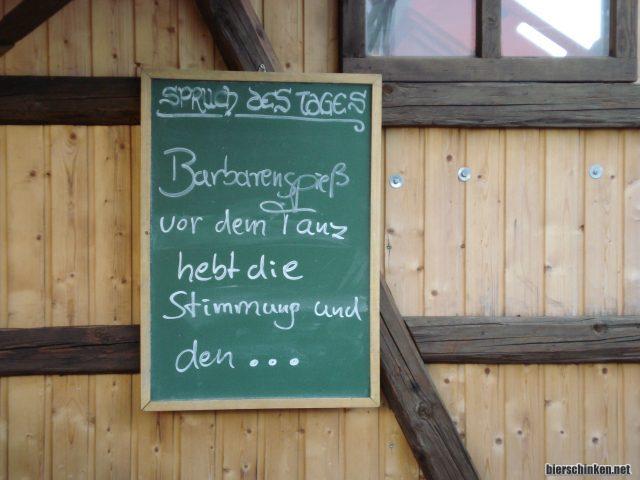 SPRUCH DES TAGES
Barbarenspieß
vor dem Tanz
hebt die
Stimmung und
den ...
bierschinken.net